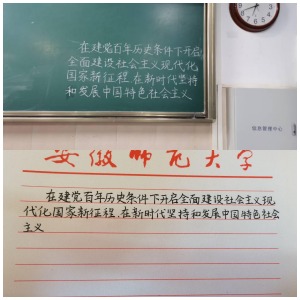 在建党百年历史条件下开启
全面建设社会主义现代化
国家新征程，在新时代坚持
和发展中国特色社会主义
信息管理中心
安徽师范大学
在建党百年历史条件下开启全面建设社会主义现
代化国家新征程，在新时代坚持和发展中国特色社会
主义